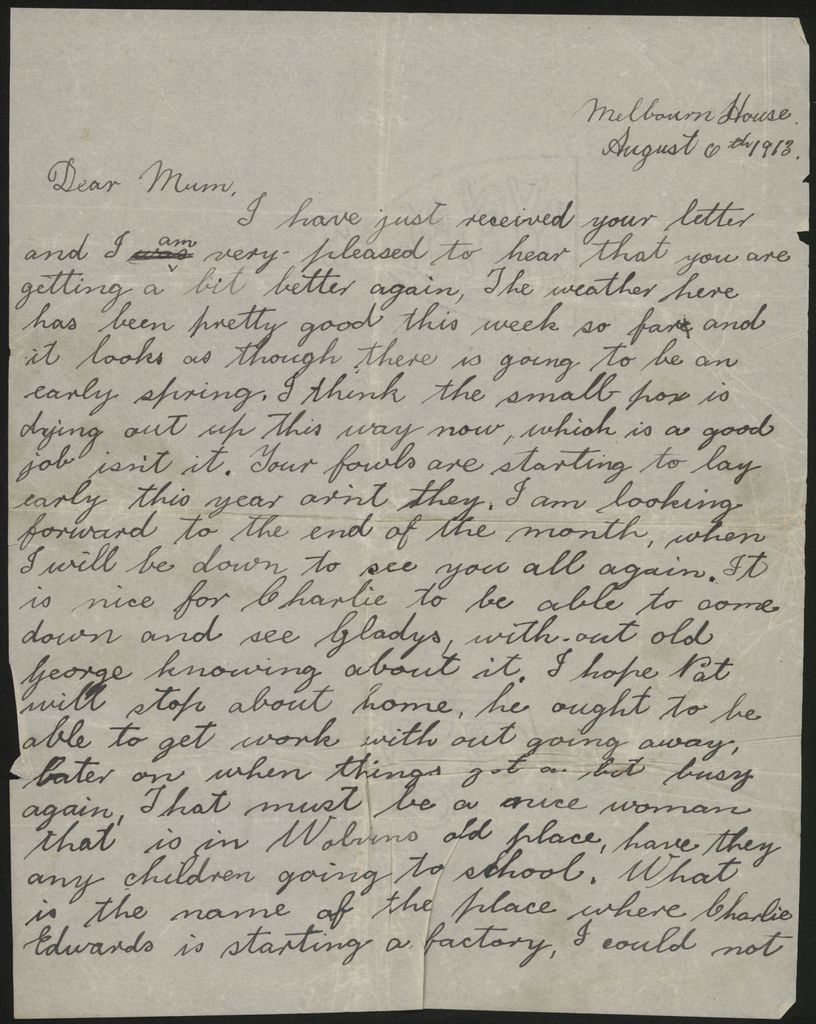 Melbourn House.
August 6th 1913.
Dear Mum,
I have just received your letter
and I was am very pleased to hear that you are
getting a bit better again, The weather here
has been pretty good this week so far and
it looks as though there is going to be an
early spring. I think the small pox is
dying out up this way now, which is a good
job isn't it. Your fowls are starting to lay
early this year arn't they. I am looking
forward to the end of the month, when
I will be down to see you all again. It
is nice for Charlie to be able to come
down and see Gladys, with-out old
George knowing about it. I hope Pat
will stop about home, he ought to be
able to get work with out going away,
later on when things get a bit busy
again, That must be a nice woman
that is in old place, have they
any children going to school. What
is the name of the place where Charlie
Edwards is starting a factory, I could not